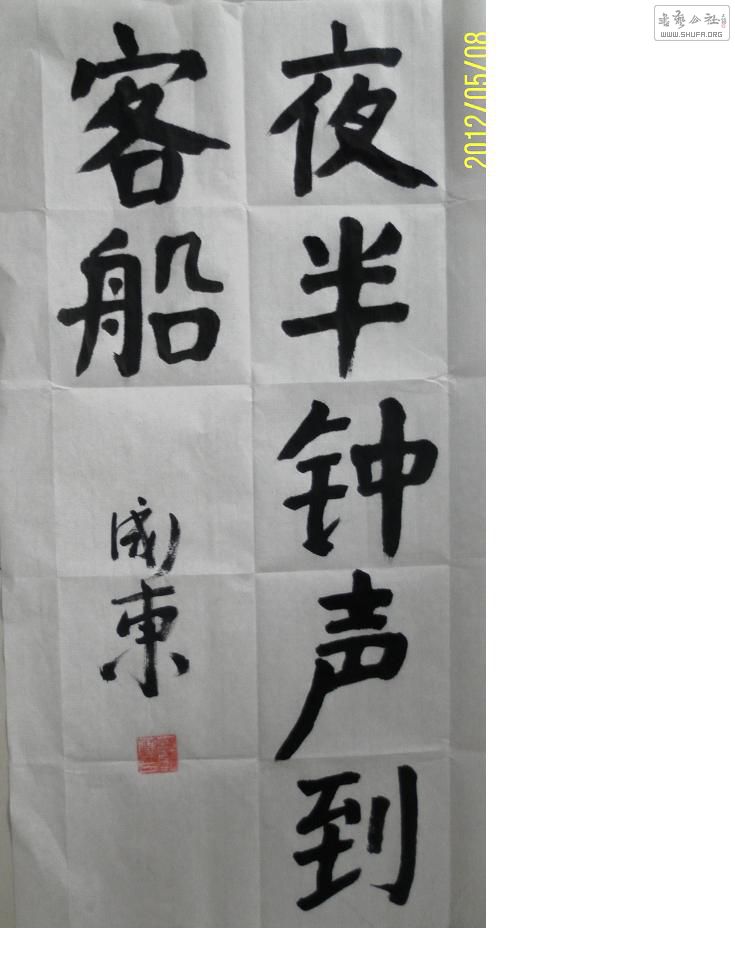 夜半钟声到
客船
國東
2012/05/08
书艺公社
WWW.SHUFA.ORG